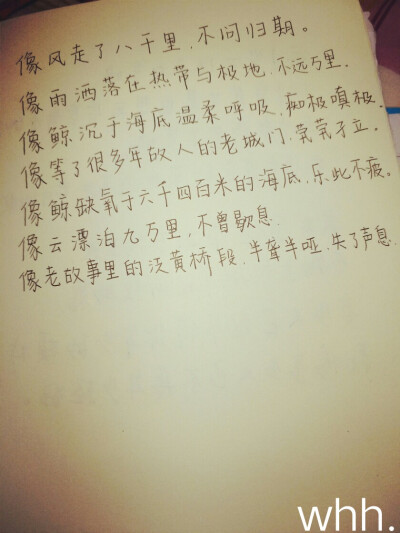 像风走了八千里,不问归期。
像雨洒落在热带与极地,不远万里.
像鲸沉于海底温柔呼吸,痴极嗔极.
像等了很多年故人的老城门,茕茕孑立.
像鲸缺氧于六千四百米的海底,乐此不疲。
像云漂泊九万里,不曾歇息.
像老故事里的泛黄桥段.半聋半哑.失了声息.
whh.